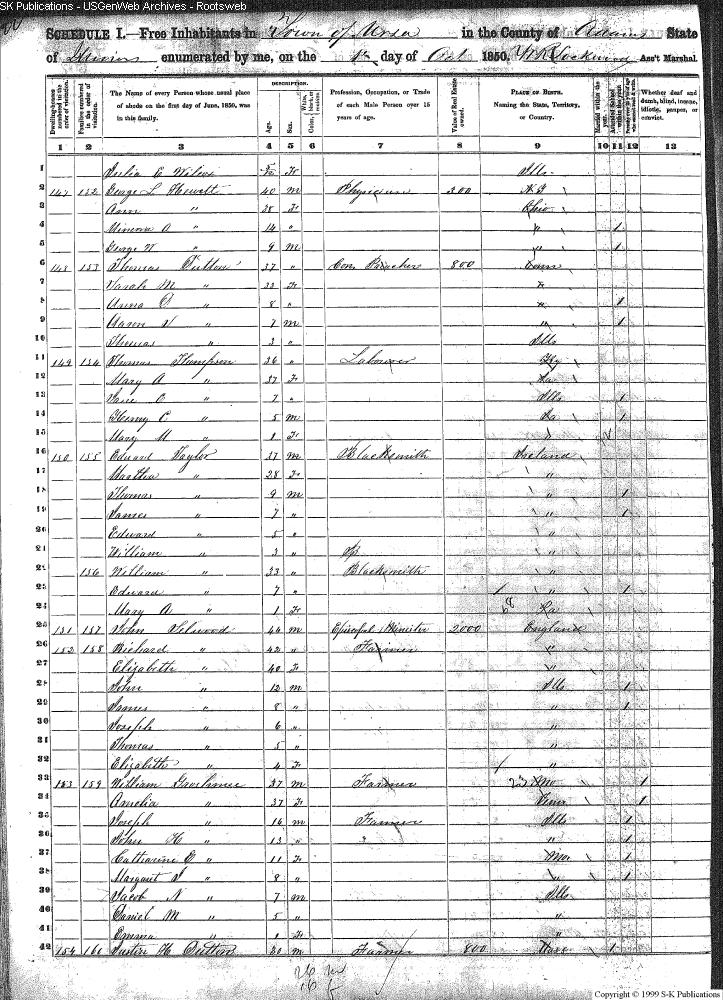 SK Publications - USGenWeb Archives - Rootsweb
SCHEDULE I.—Free Inhabitants in Town of Ursa in the County of Adams State
of Illinois enumerated by me, on the 1st day of Oct 1850. Ass't Marshal.
Dwelling-houses numbered in the order of visitation. Families numbered in the order of visitation. The Name of every Person whose usual place of abode on the first day of June, 1850, was in this family. DESCRIPTION. Age. Sex. White, black, or mulatto. Color, Profession, Occupation, or Trade of each Male Person over 15 years of age. Value of Real Estate owned. PLACE OF BIRTH. Naming the State, Territory, or Country. Married within the year. Attended School within the year. Whether deaf and dumb, blind, insane, idiotic, pauper, or convict.
1 2 3 4 5 6 7 8 9 10 11 12 13
1 Julia E Wilcox F Ills
2 147 152 George L Hewett 40 M Physician 300 N.Y
3 Ann " 38 F Ohio
4 Minerva A " 14 " " 1
5 George W " 9 M " 1
6 148 153 Thomas 37 " Preacher 800 Tenn
7 Sarah M " 33 F "
8 Anna " 8 " " 1
9 Aaron V " 7 M " 1
10 Thomas " 3 " Ills
11 149 154 Thomas Thompson 36 " Labourer Ky
12 Mary A " 37 F La
13 Jane C " 7 " Ills 1
14 Henry C " 5 M La 1
15 Mary M " 1 F "
16 150 155 Edward Taylor 37 M Blacksmith Ireland
17 Martha " 28 F "
18 Thomas " 9 M " 1
19 James " 7 " " 1
20 Edward " 5 " "
21 William " 3 " "
22 156 William " 33 " Blacksmith "
23 Edward " 7 " " 1
24 Mary A " 1 F La
25 151 157 John Selwood 44 M Episcopal Minister 2000 England
26 152 158 Richard " 42 " Farmer "
27 Elizabeth " 40 F "
28 John " 12 M Ills 1
29 James " 8 " " 1
30 Joseph " 6 " "
31 Thomas " 5 " "
32 Elizabeth " 4 F "
33 153 159 William 37 M Farmer Mo 1
34 Amelia " 37 F Tenn 1
35 Joseph " 16 M Farmer Ills 1
36 John H " 13 " " 1
37 Catharine E " 11 F Mo 1
38 Margaret " 8 " " 1
39 Jacob N " 7 M Ills
40 Daniel M " 5 " "
41 Emma " 1 F "
42 154 160 Justin H 20 M Farmer 800 1
Copyright © 1999 S-K Publications